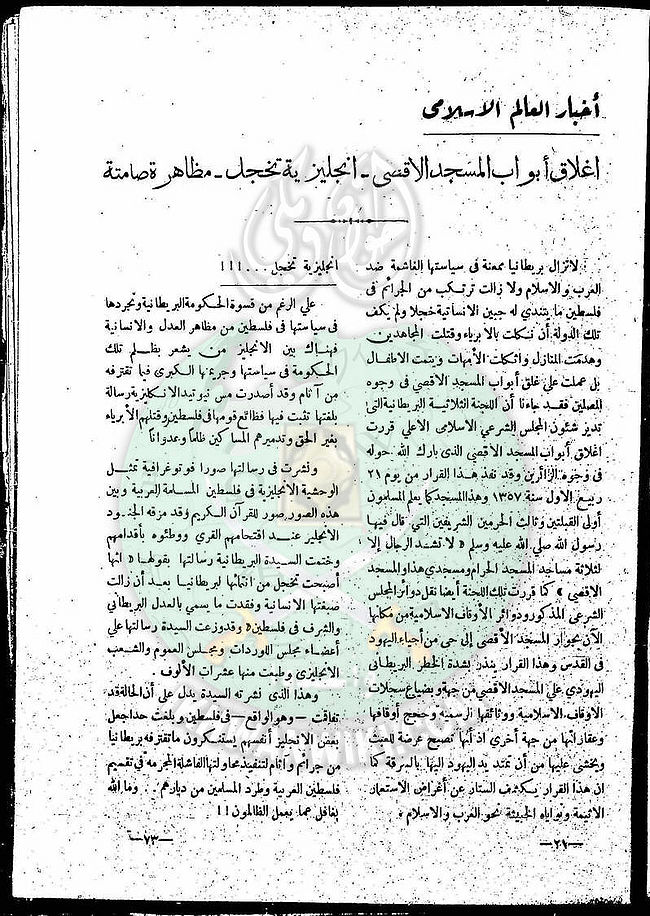 أخبار العالم الاسلامى
اغلاق أبواب المسجد الاقصى - انجليزية تخجل - مظاهرة صامتة
لاتزال بريطانيا ممعنة فى سياستها الغاشمة ضد
العرب والاسلام ولا زالت ترتكب من الجرائم فى
فلسطين ما يتندي له جبين الانسانية خجلا ولم يكف
تلك الدولة أن نكلت بالابرياء وقتلت المجاهدين
وهدمت المنازل وأثكلت الأمهات ويتمت الاطفال
بل عملت علي غلق أبواب المسجد الاقصي فى وجوه
المصلين فقد جاءنا أن اللجنة الثلاثية البريطانية التى
تدير شئون المجلس الشرعي الاسلامى الاعلي قررت
اغلاق أبواب المسجد الاقصي الذى بارك الله حوله
فى وجوه الزائرين وقد نفذ هذا القرار من يوم ٢١
ربيع الاول سنة ١٣٥٧ وهذا المسجد كما يعلم المسلمون
أولى القبلتين وثالث الحرمين الشريفين التي قال فيها
رسول الله صلي الله عليه وسلم « لا تشد الرحال إلا
لثلاثة مساجد المسجد الحرام ومسجدي هذا والمسجد
الاقصي » كما قررت تلك اللجنة أيضا نقل دوائر المجلس
الشرعي المذكور ودوائر الأوقاف الاسلامية من مكانها
الآن بجوار المسجد الأقصي إلى حى من أحياء اليهود
فى القدس وهذا القرار ينذر بشدة الخطر البريطانى
اليهودي علي المسجد الاقصي من جهة وبضياع سجلات
الأوقاف الاسلامية ووثائقها الرسمية وحجج أوقافها
وعقاراتها من جهة أخري اذ أنها تصبح عرضة للعبث
ويخشي عليها من أن تمتد يد اليهود اليها بالسرقة كما
ان هذا القرار يكشف الستار عن أغراض الاستعمار
الاثيمة ونواياه الخبيثة نحو العرب والاسلام .
انجليزية تخجل ... !!!
علي الرغم من قسوة الحكومة البريطانية وتجردها
فى سياستها فى فلسطين من مظاهر العدل والانسانية
فهناك بين الانجليز من يشعر بظلم تلك
الحكومة فى سياستها وجريمتها الكبرى فيما تقترفه
من آثام وقد أصدرت مس نيوتيد الانكليزية رسالة
بلغتها تثبت فيها فظائع قومها فى فلسطين وقتلهم الأبرياء
بغير الحق وتدميرهم المساكين ظلماً وعدواناً
ونشرت فى رسالتها صورا فوتوغرافية تمثل
الوحشية الانجليزية فى فلسطين المسلمة العربية وبين
هذه الصور صور للقرآن الكريم وقد مزقه الجنود
الانجليز عند اقتحامهم القري ووطئوه بأقدامهم
وختمت السيدة البريطانية رسالتها بقولها « انها
أصبحت تخجل من انتمائها لبريطانيا بعد أن زالت
صبغتها الانسانية وفقدت ما يسمي بالعدل البريطاني
والشرف فى فلسطين » وقد وزعت السيدة رسالتها علي
أعضاء مجلس اللوردات ومجلس العموم والشعب
الانجليزى وطبعت منها عشرات الألوف .
وهذا الذى نشرته السيدة يدل علي أن الحالة قد
تفاقت - وهو الواقع - فى فلسطين وبلغت حدا جعل
بعض الانجليز أنفسهم يستنكرون ما تقترفه بريطانيا
من جرائم وآثام لتنفيذ محاولتها الفاشلة المجرمة فى تقسيم
فلسطين العربية وطرد المسلمين من ديارهم .. وما الله
بغافل عما يعمل الظالمون !!
—٧٣—